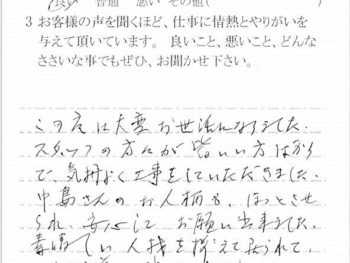 良い 普通 悪い その他( )
3 お客様の声を聞くほど、仕事に情熱とやりがいを
与えて頂いています。良いこと、悪いこと、どんな
ささいな事でもぜひ、お聞かせ下さい。
この度は大変お世話になりました。
スタッフの方々が皆いい方ばかり
で、気持よく工事をしていただきました。
中島さんのお人柄も、ほっとさせ
られ、安心して お願い出来ました。
素晴しい人材を揃えておられて、